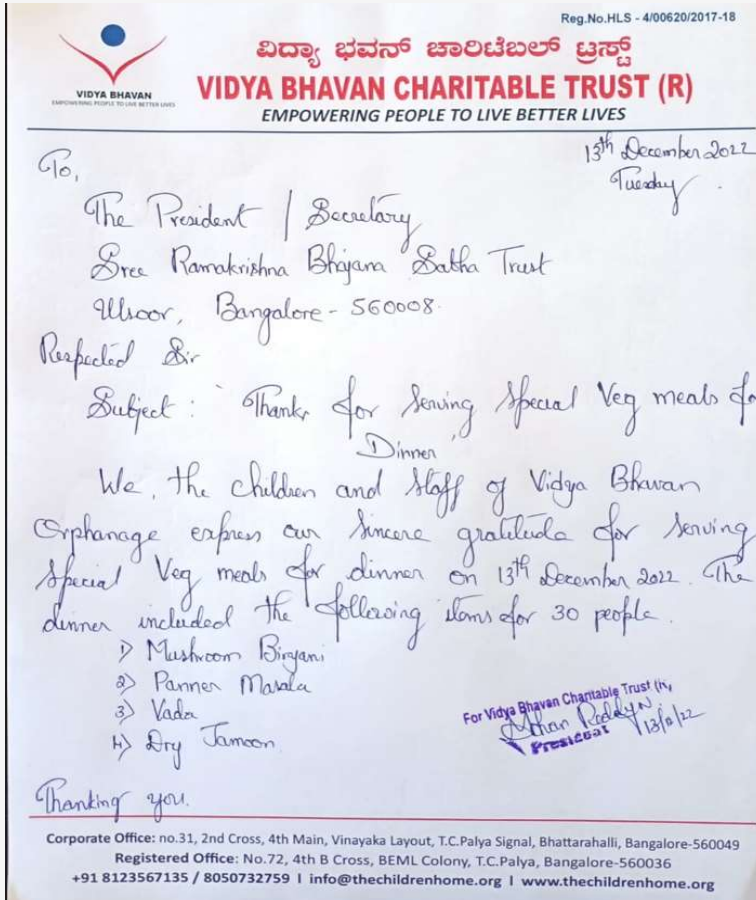 Reg.No.HLS - 4/00620/2017-18
ವಿದ್ಯಾ ಭವನ್ ಚಾರಿಟೆಬಲ್ ಟ್ರಸ್ಟ್
VIDYA BHAVAN CHARITABLE TRUST (R)
EMPOWERING PEOPLE TO LIVE BETTER LIVES
VIDYA BHAVAN
EMPOWERING PEOPLE TO LIVE BETTER LIVES
13th December 2022
Tuesday.
To,
The President / Secretary
Sree Ramakrishna Bhajana Sabha Trust
Ulsoor, Bangalore - 560008.
Respected Sir
Subject: "Thanks for Serving Special Veg meals for
Dinner"
We, the children and staff of Vidya Bhavan
Orphanage express our sincere gratitude for serving
Special Veg meals for dinner on 13th December 2022. The
dinner included the following items for 30 people.
1) Mushroom Biryani
2) Panner Masala
3) Vada
4) Dry Jamoon.
For Vidya Bhavan Charitable Trust (R)
Reddy N 13/12/22
President
Thanking you.
Corporate Office: no.31, 2nd Cross, 4th Main, Vinayaka Layout, T.C.Palya Signal, Bhattarahalli, Bangalore-560049
Registered Office: No.72, 4th B Cross, BEML Colony, T.C.Palya, Bangalore-560036
+91 8123567135 / 8050732759 I info@thechildrenhome.org I www.thechildrenhome.org